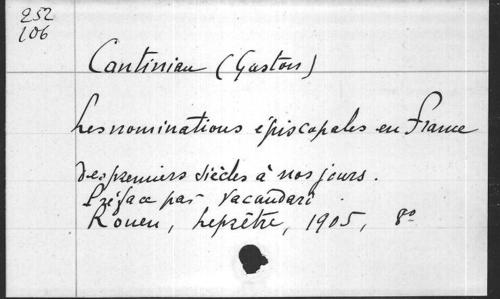 252
106
Cantiniau (Gaston)
Les nominations épiscopales en France
des premiers siècles à nos jours.
Préface par Vacandard
Rouen, Leprêtre, 1905, 8º